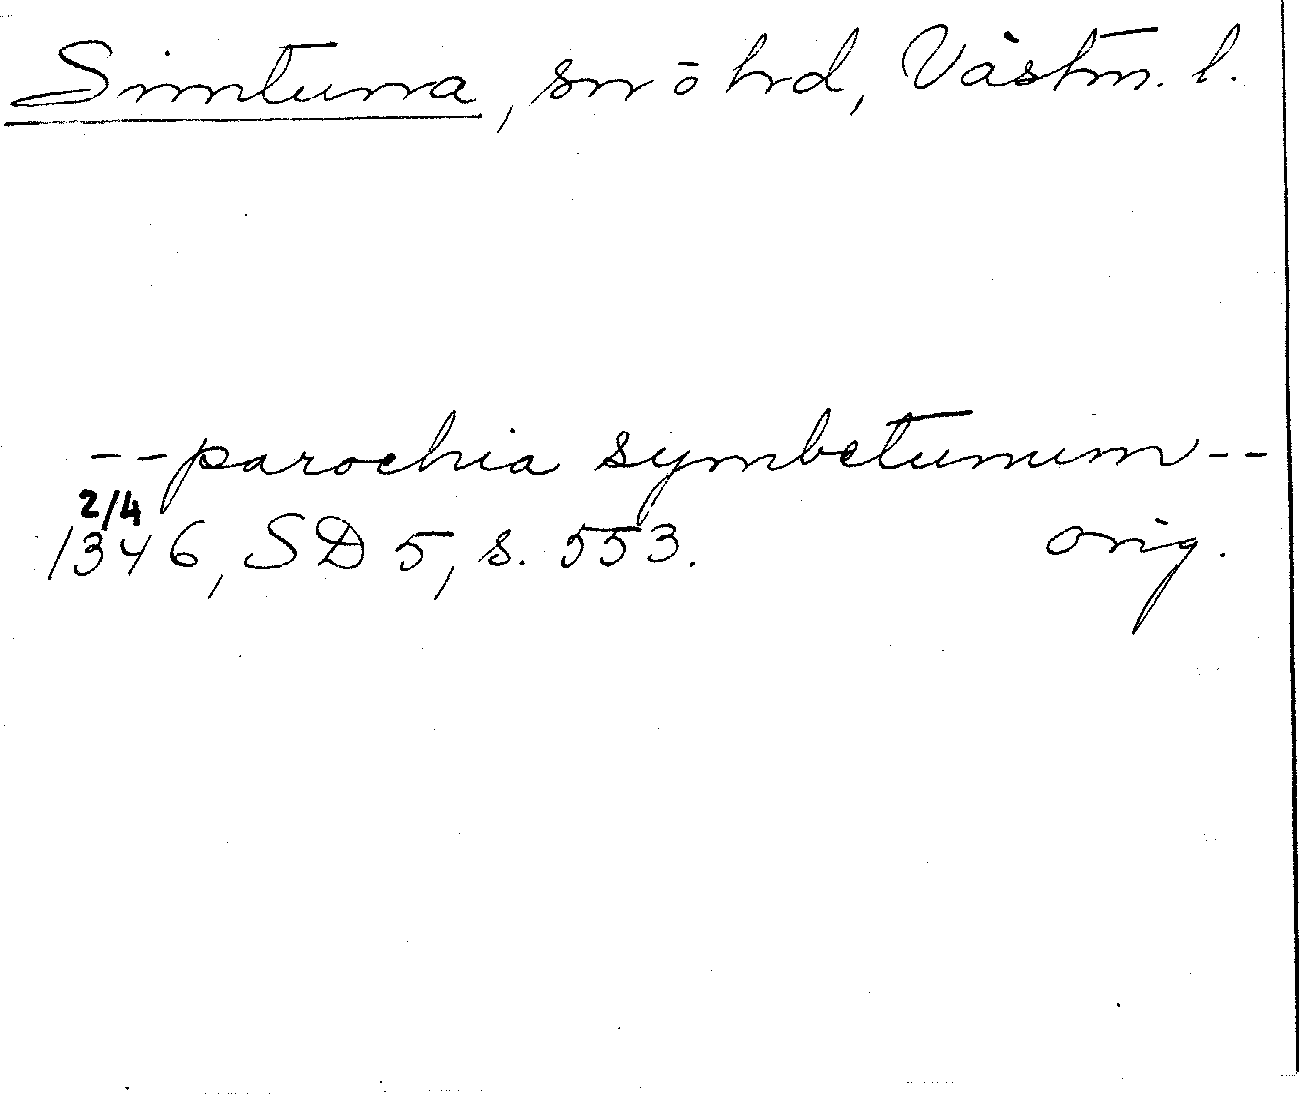 Simtuna, sn ō hd, Västm. l.
--parochia symbetunum--
2/4
1346, SD 5, s. 553. orig.